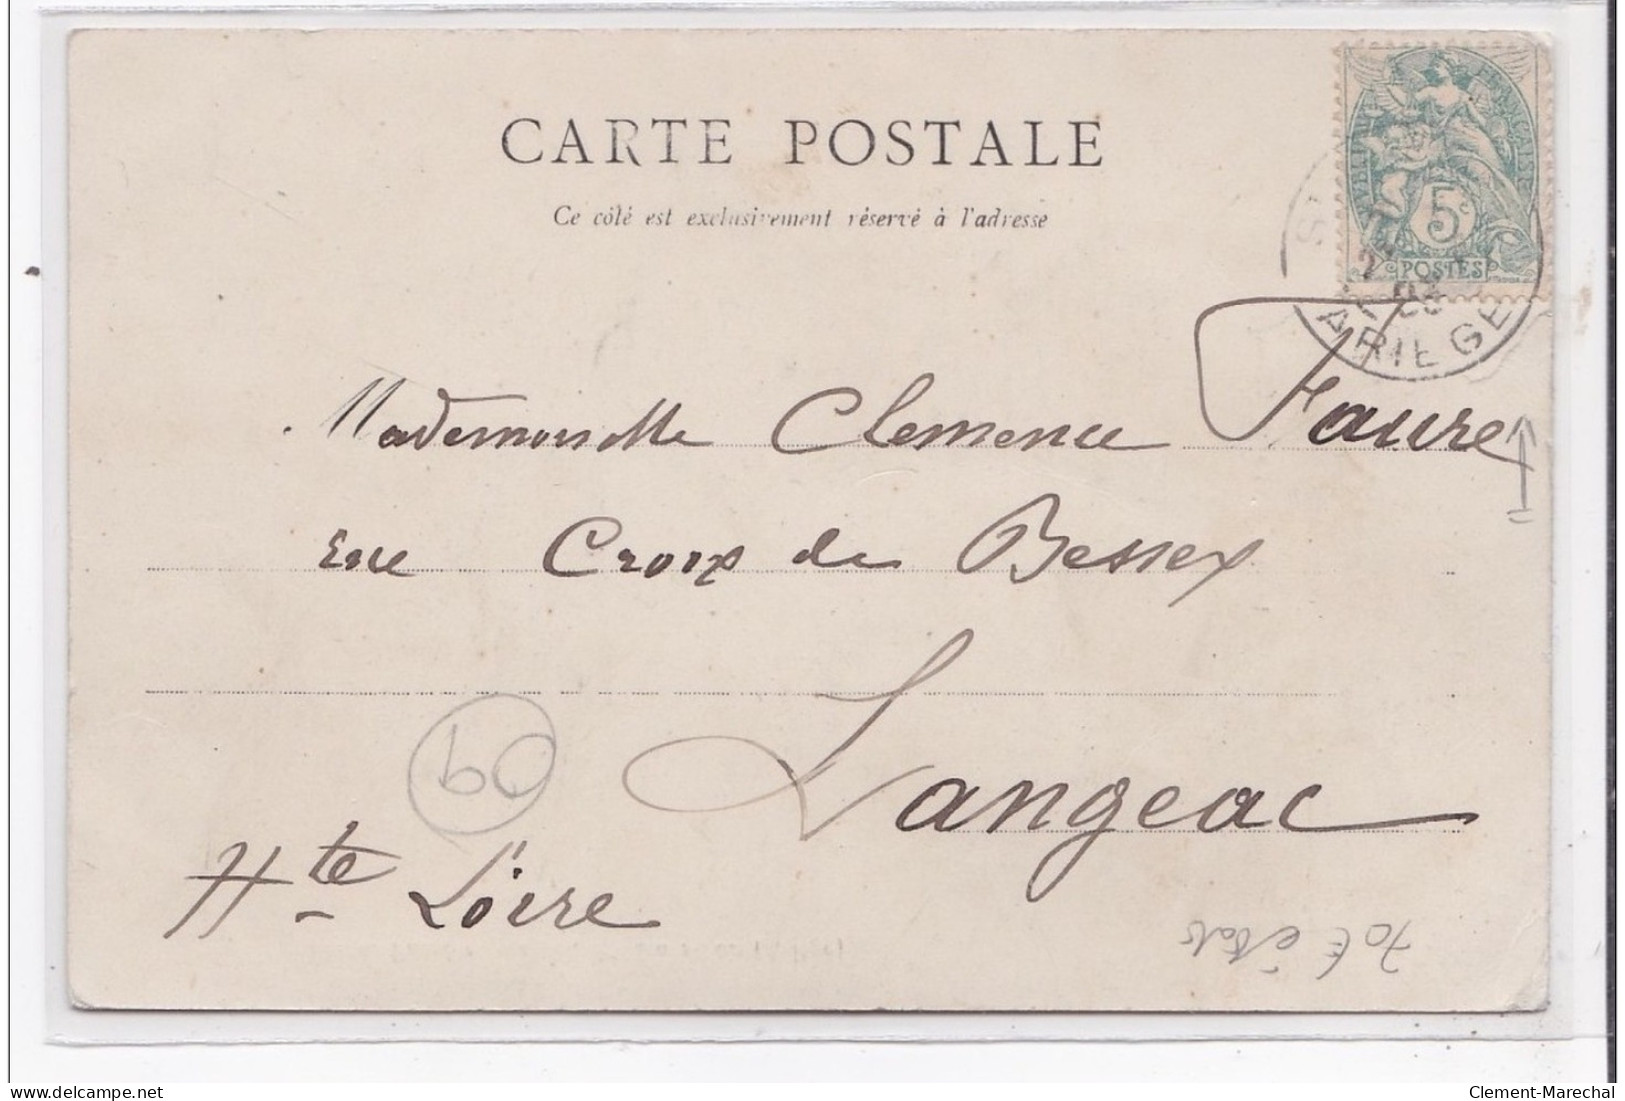 CARTE POSTALE
Ce côté est exclusivement réservé à l'adresse
RÉPUBLIQUE FRANÇAISE
5c
POSTES
ARIEGE
Mademoiselle Clemence Faure
rue Croix de Bessex
Langeac
Hte Loire
60
Clement-Marechal